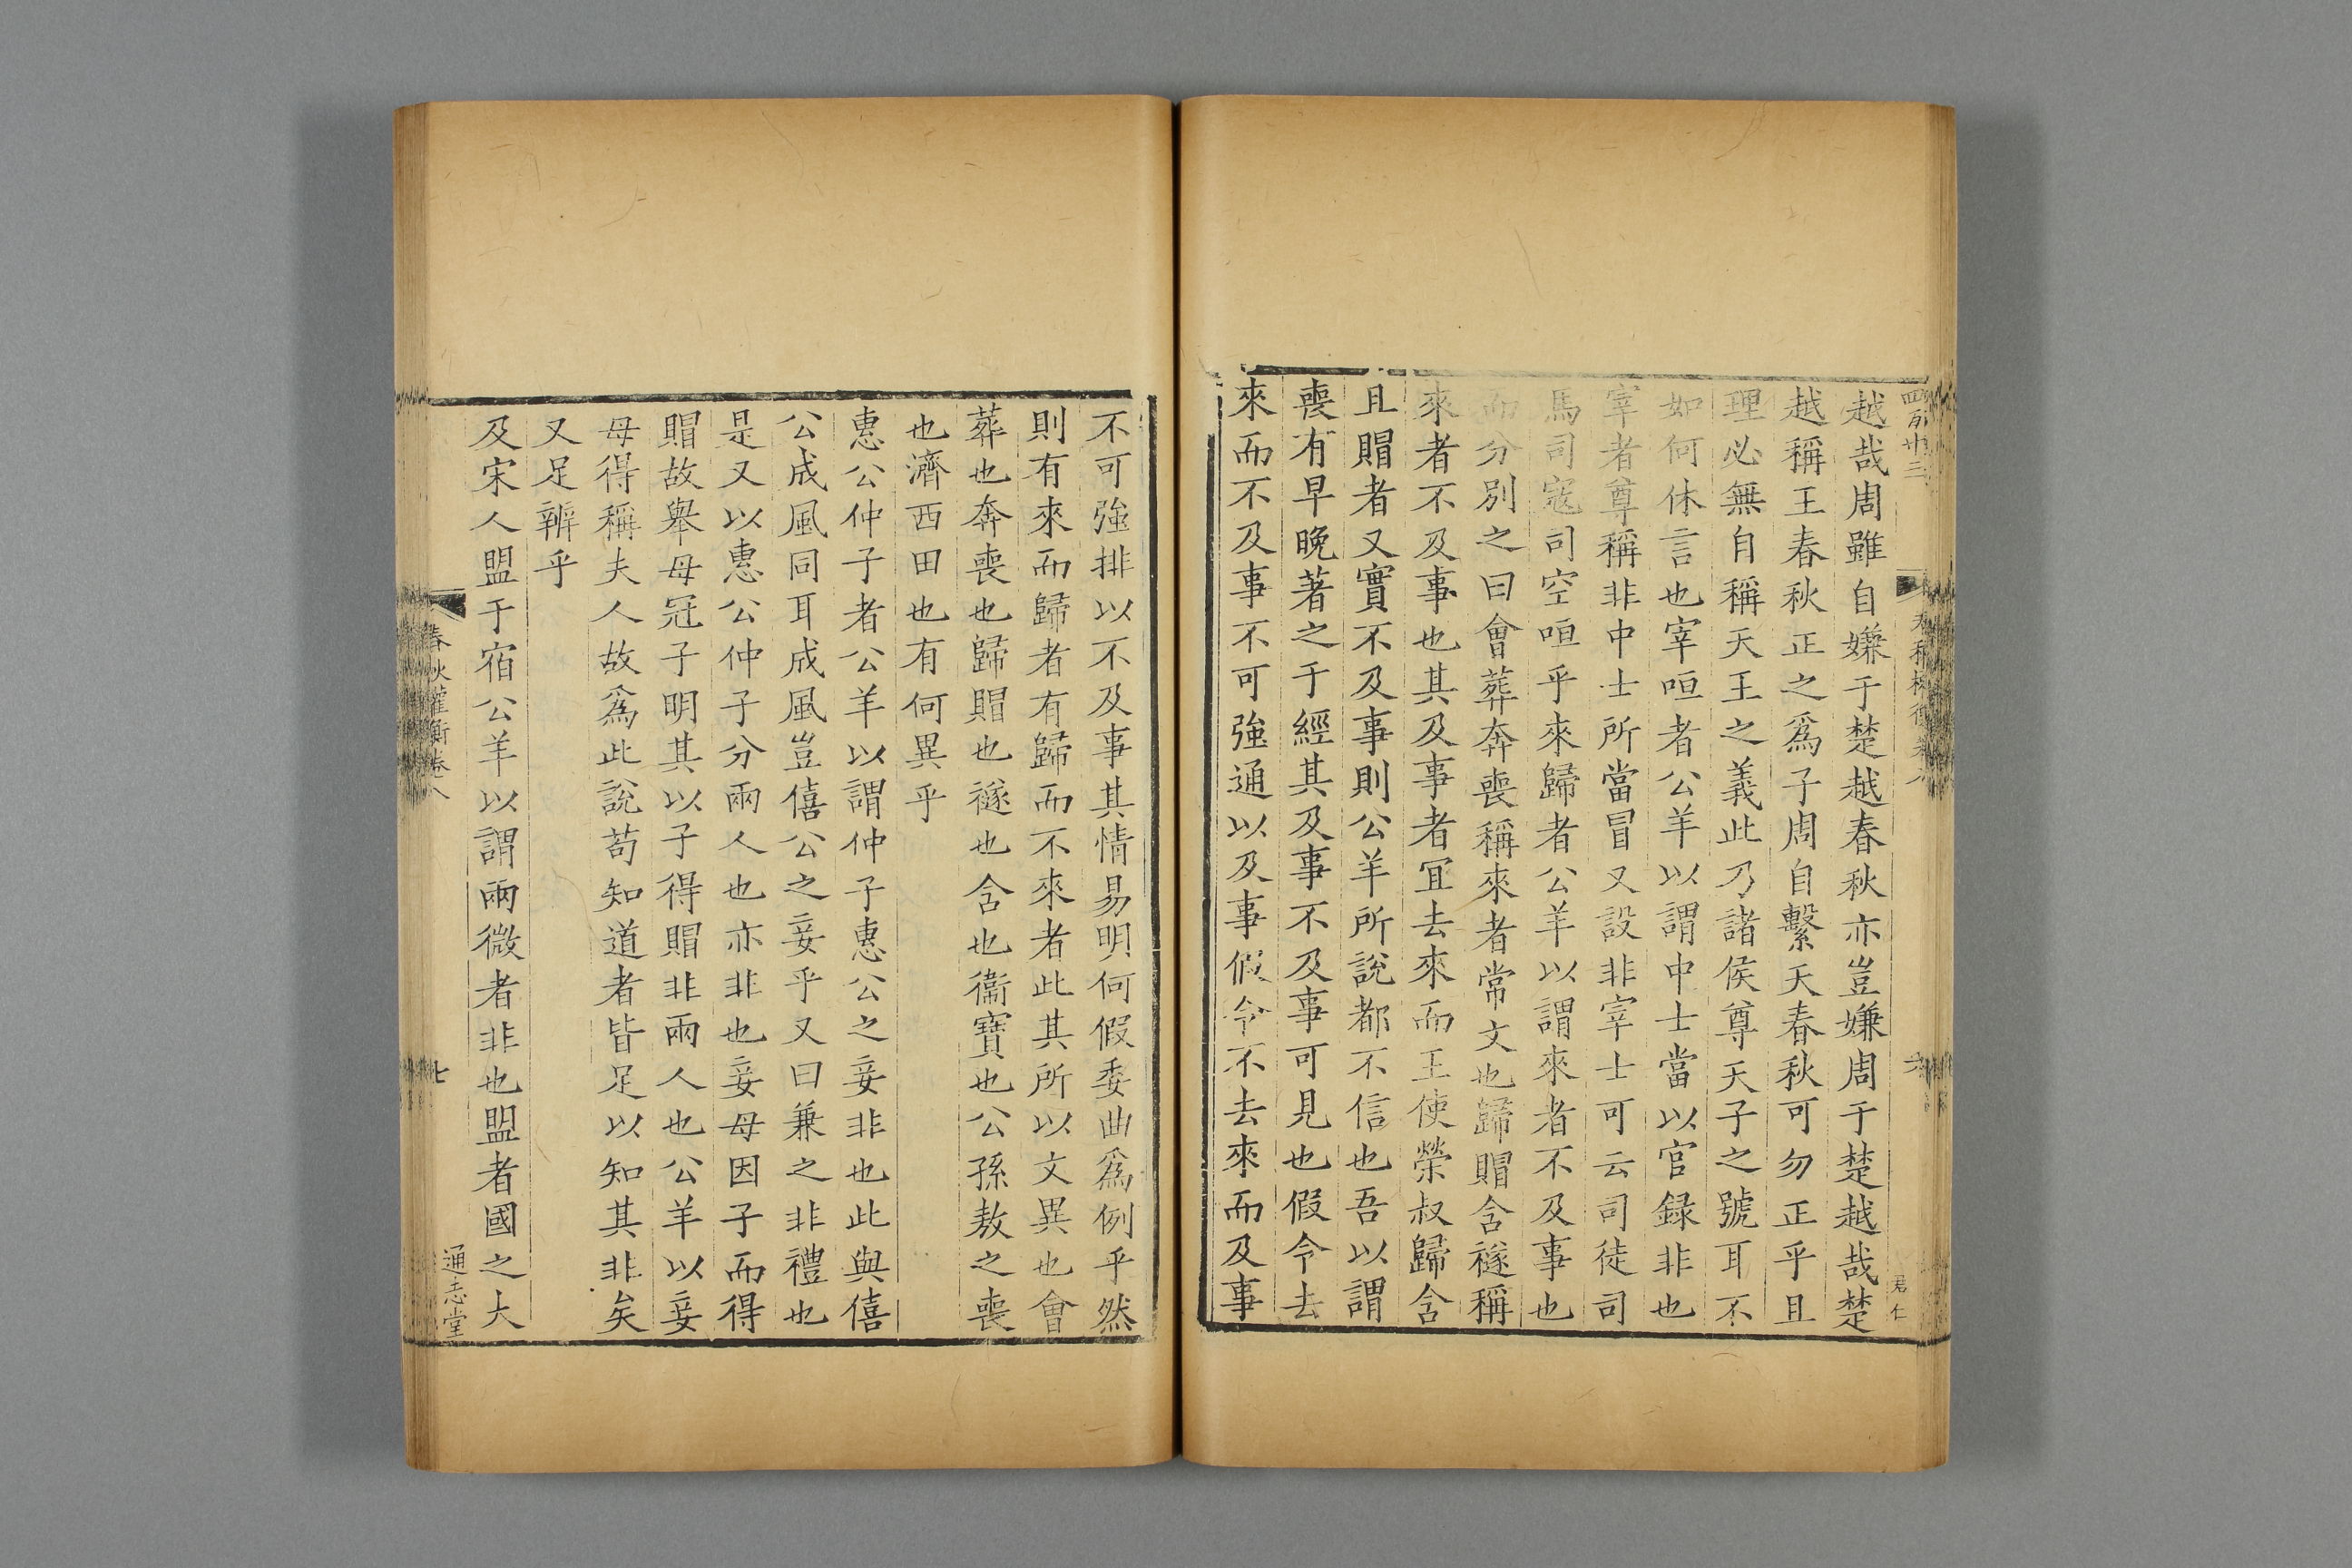 越哉周雖自嫌于楚越春秋亦豈嫌周于楚越哉楚
越稱王春秋正之爲子周自繫天春秋可勿正乎且
理必無自稱天王之義此乃諸侯尊天子之號耳不
如何休言也宰咺者公羊以謂中士當以官録非也
宰者尊稱非中士所當冒又設非宰士可云司徒司
馬司寇司空咺乎來歸者公羊以謂來者不及事也
而分別之曰會葬奔喪稱來者常文也歸賵含禭稱
來者不及事也其及事者宜去來而王使榮叔歸含
且賵者又實不及事則公羊所說都不信也吾以謂
喪有早晚著之于經其及事不及事可見也假令去
來而不及事不可強通以及事假令不去來而及事
君仁
不可強排以不及事其情易明何假委曲爲例乎然
則有來而歸者有歸而不來者此其所以文異也會
葬也奔喪也歸賵也禭也含也衞寶也公孫敖之喪
也濟西田也有何異乎
惠公仲子者公羊以謂仲子惠公之妾非也此與僖
公成風同耳成風豈僖公之妾乎又曰兼之非禮也
是又以惠公仲子分兩人也亦非也妾母因子而得
賵故舉母冠子明其以子得賵非兩人也公羊以妾
母得稱夫人故爲此說苟知道者皆足以知其非矣
又足辨乎
及宋人盟于宿公羊以謂兩微者非也盟者國之大
春秋權衡卷八
七
通志堂